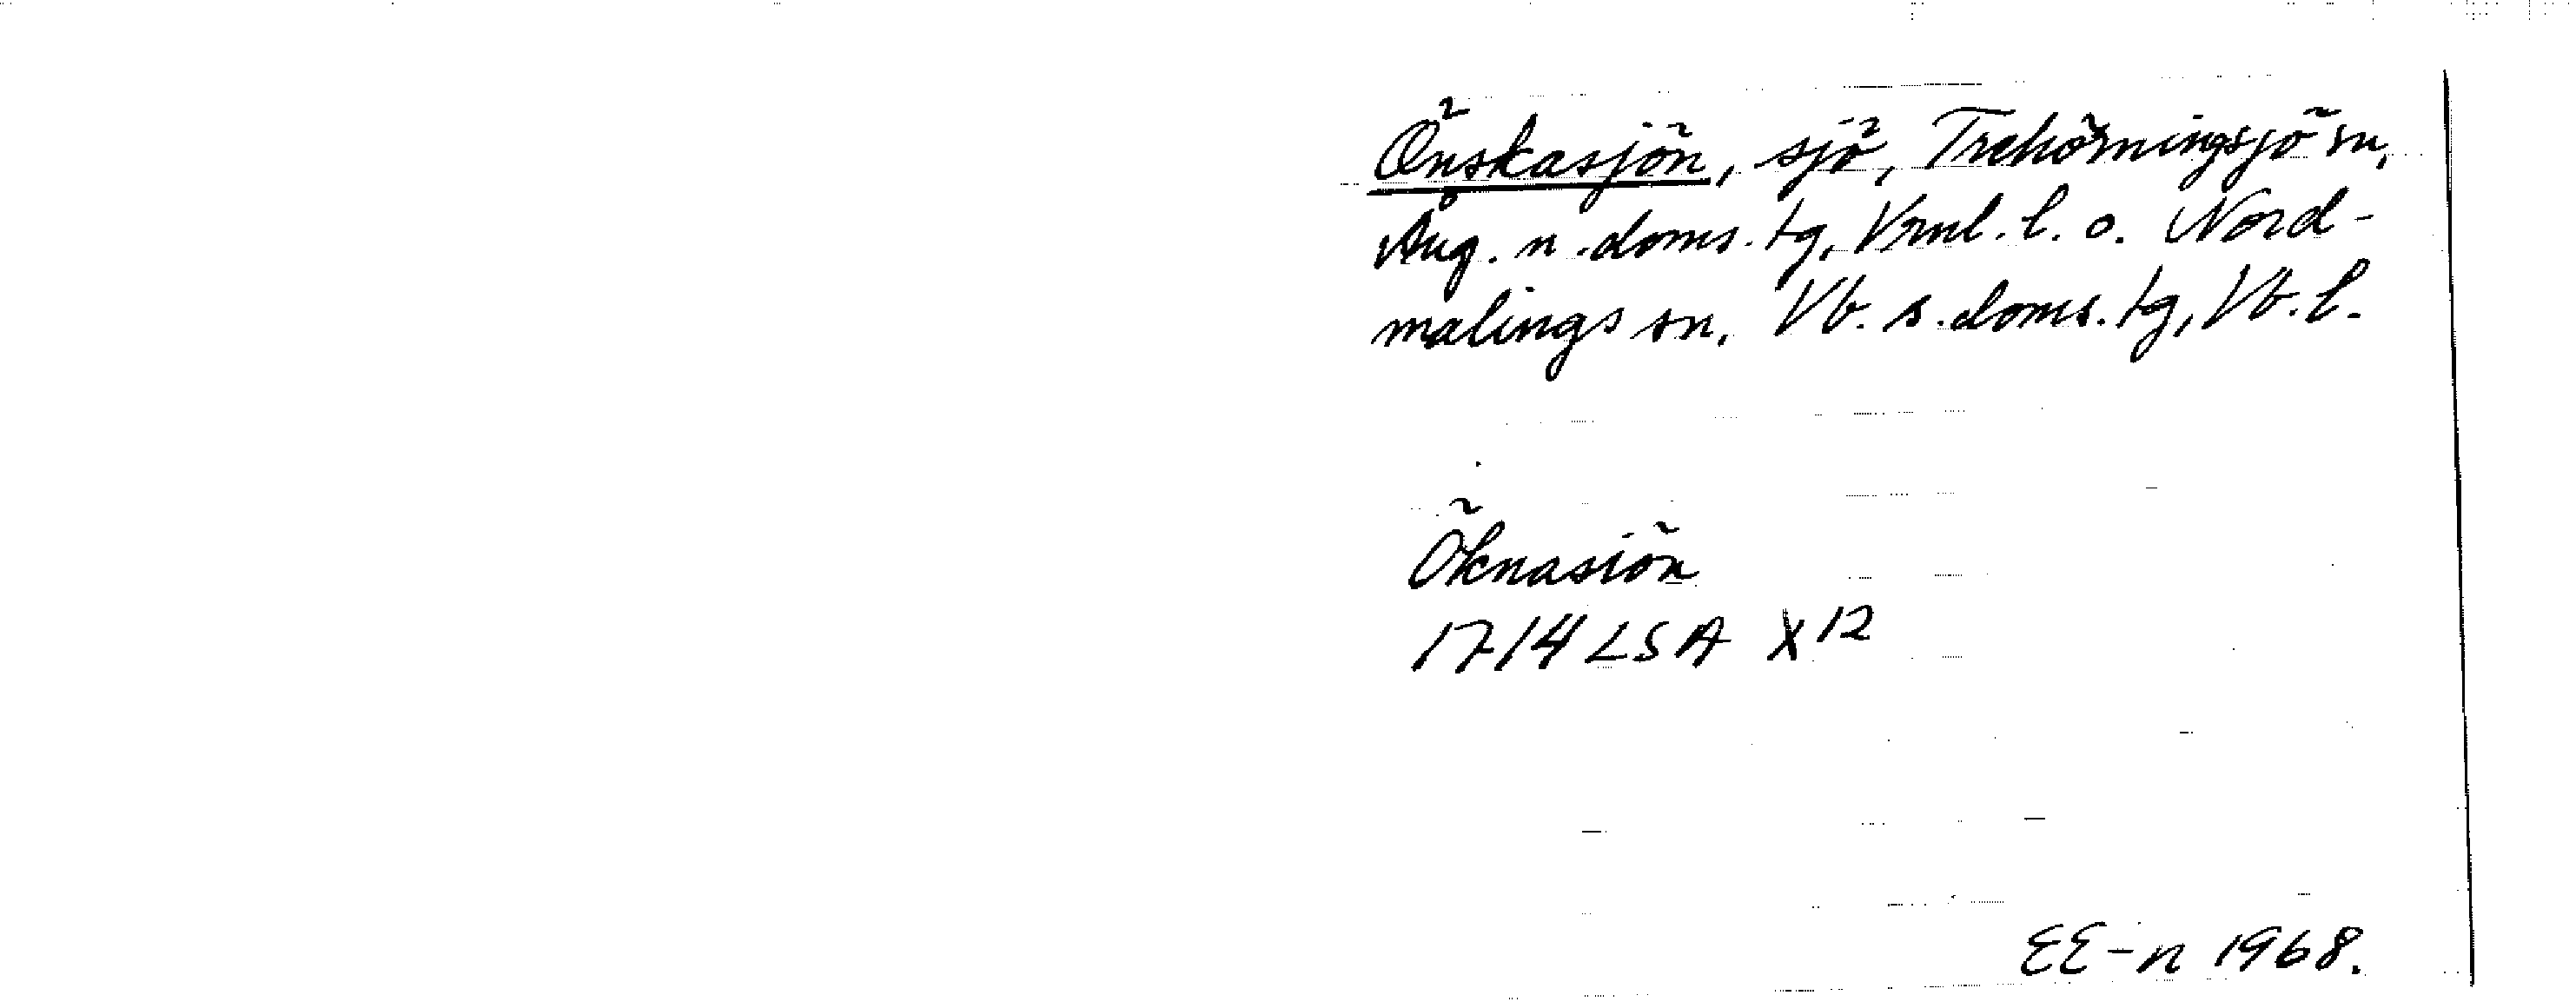 Önskasjön, sjö, Trehörningsjö sn,
Ång. n. doms. tg, Vrnl. l. o. Nord-
malings sn, Vb. s. doms. tg, Vb. l.
Öknasiön
1714 LSA X 12
EE-n 1968.